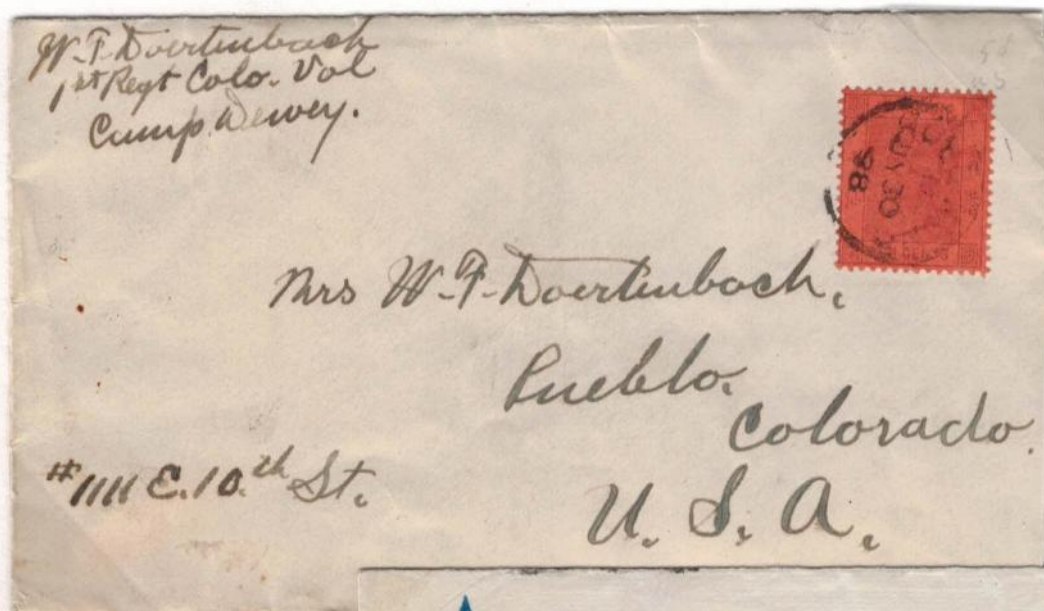 W. F. Doertenbach
1st Regt Colo. Vol
Camp Dewey.
JY 30
98
Mrs W. F. Doertenbach,
Pueblo.
Colorado.
#1111 E. 10.th St.
U. S. A.